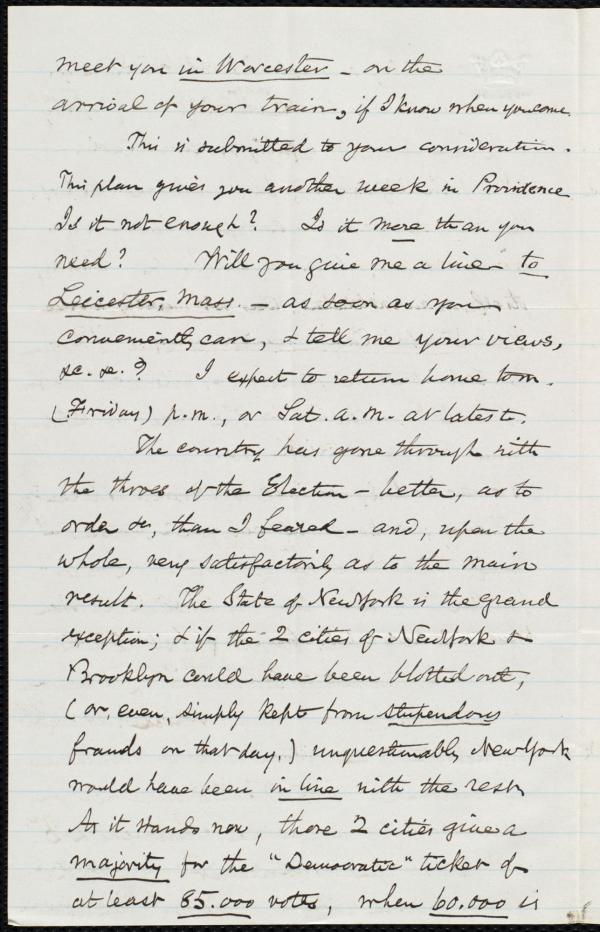 meet you in Worcester - on the
arrival of your train, if I know when you come.
This is submitted to your consideration.
This plan gives you another week in Providence
Is it not enough? Is it more than you
need? Will you give me a line to
Leicester, Mass. - as soon as you
conveniently can, & tell me your views,
&c. &c.? I expect to return home tom.
(Friday) p.m., or Sat. a.m. at latest.
The country has gone through with
the throes of the Election - better, as to
order &c, than I feared - and, upon the
whole, very satisfactorily as to the main
result. The State of New York is the grand
exception; & if the 2 cities of New York &
Brooklyn could have been blotted out,
(or, even, simply kept from stupendous
frauds on that day,) unquestionably New York
would have been in line with the rest.
As it stands now, those 2 cities give a
majority for the "Democratic" ticket of
at least 85.000 votes, when 60.000 is